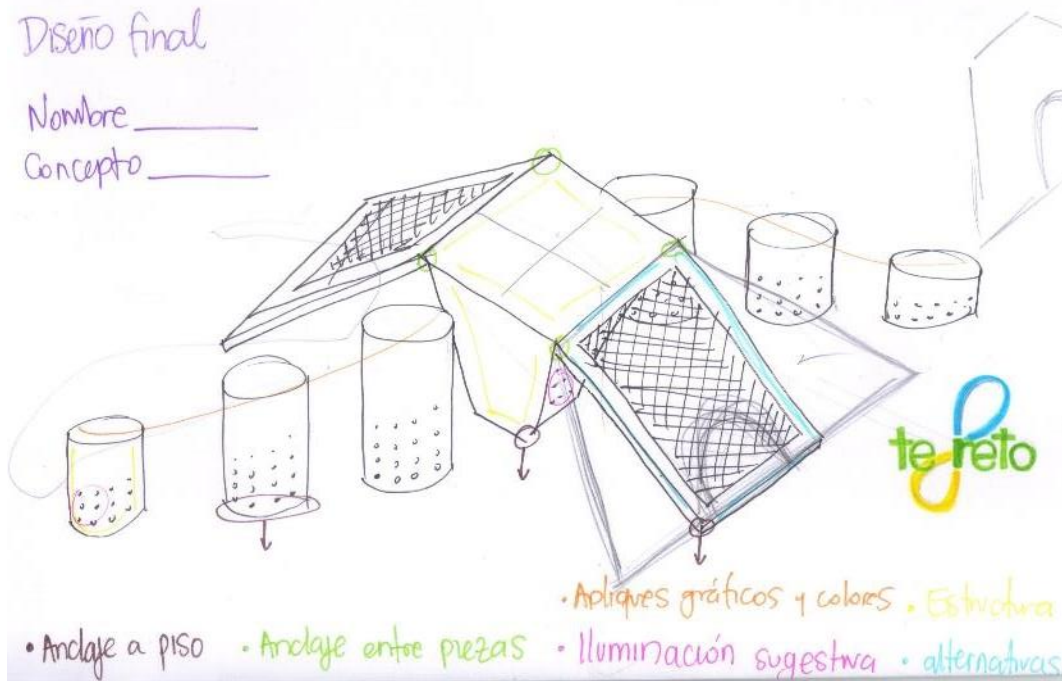 Diseño final
Nombre ______
Concepto ______
te reto
• Apliques gráficos y colores • Estructura
• Anclaje a piso • Anclaje entre piezas • Iluminación sugestiva • alternativas